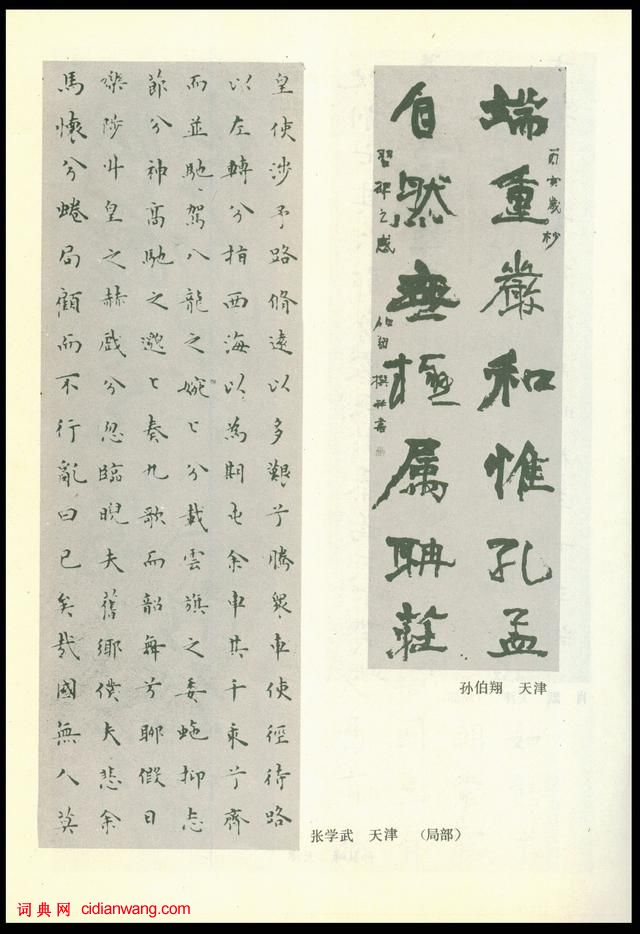 端重嚴和惟孔孟
丙寅歲杪
自然無極属聃莊
習碑之感
伯翔撰并書
孙伯翔 天津
皇使涉予路脩遠以多艱兮騰眾車使徑待路
以左轉兮指西海以為期屯余車其千乘兮齊
而並馳駕八龍之婉〻兮載雲旗之委蛇抑志
節兮神高馳之邈〻奏九歌而韶舞兮聊假日
樂陟升皇之赫戲兮忽臨睨夫舊鄉僕夫悲余
馬懷兮蜷局顧而不行亂曰已矣哉國無人莫
张学武 天津 （局部）
词典网 cidianwang.com